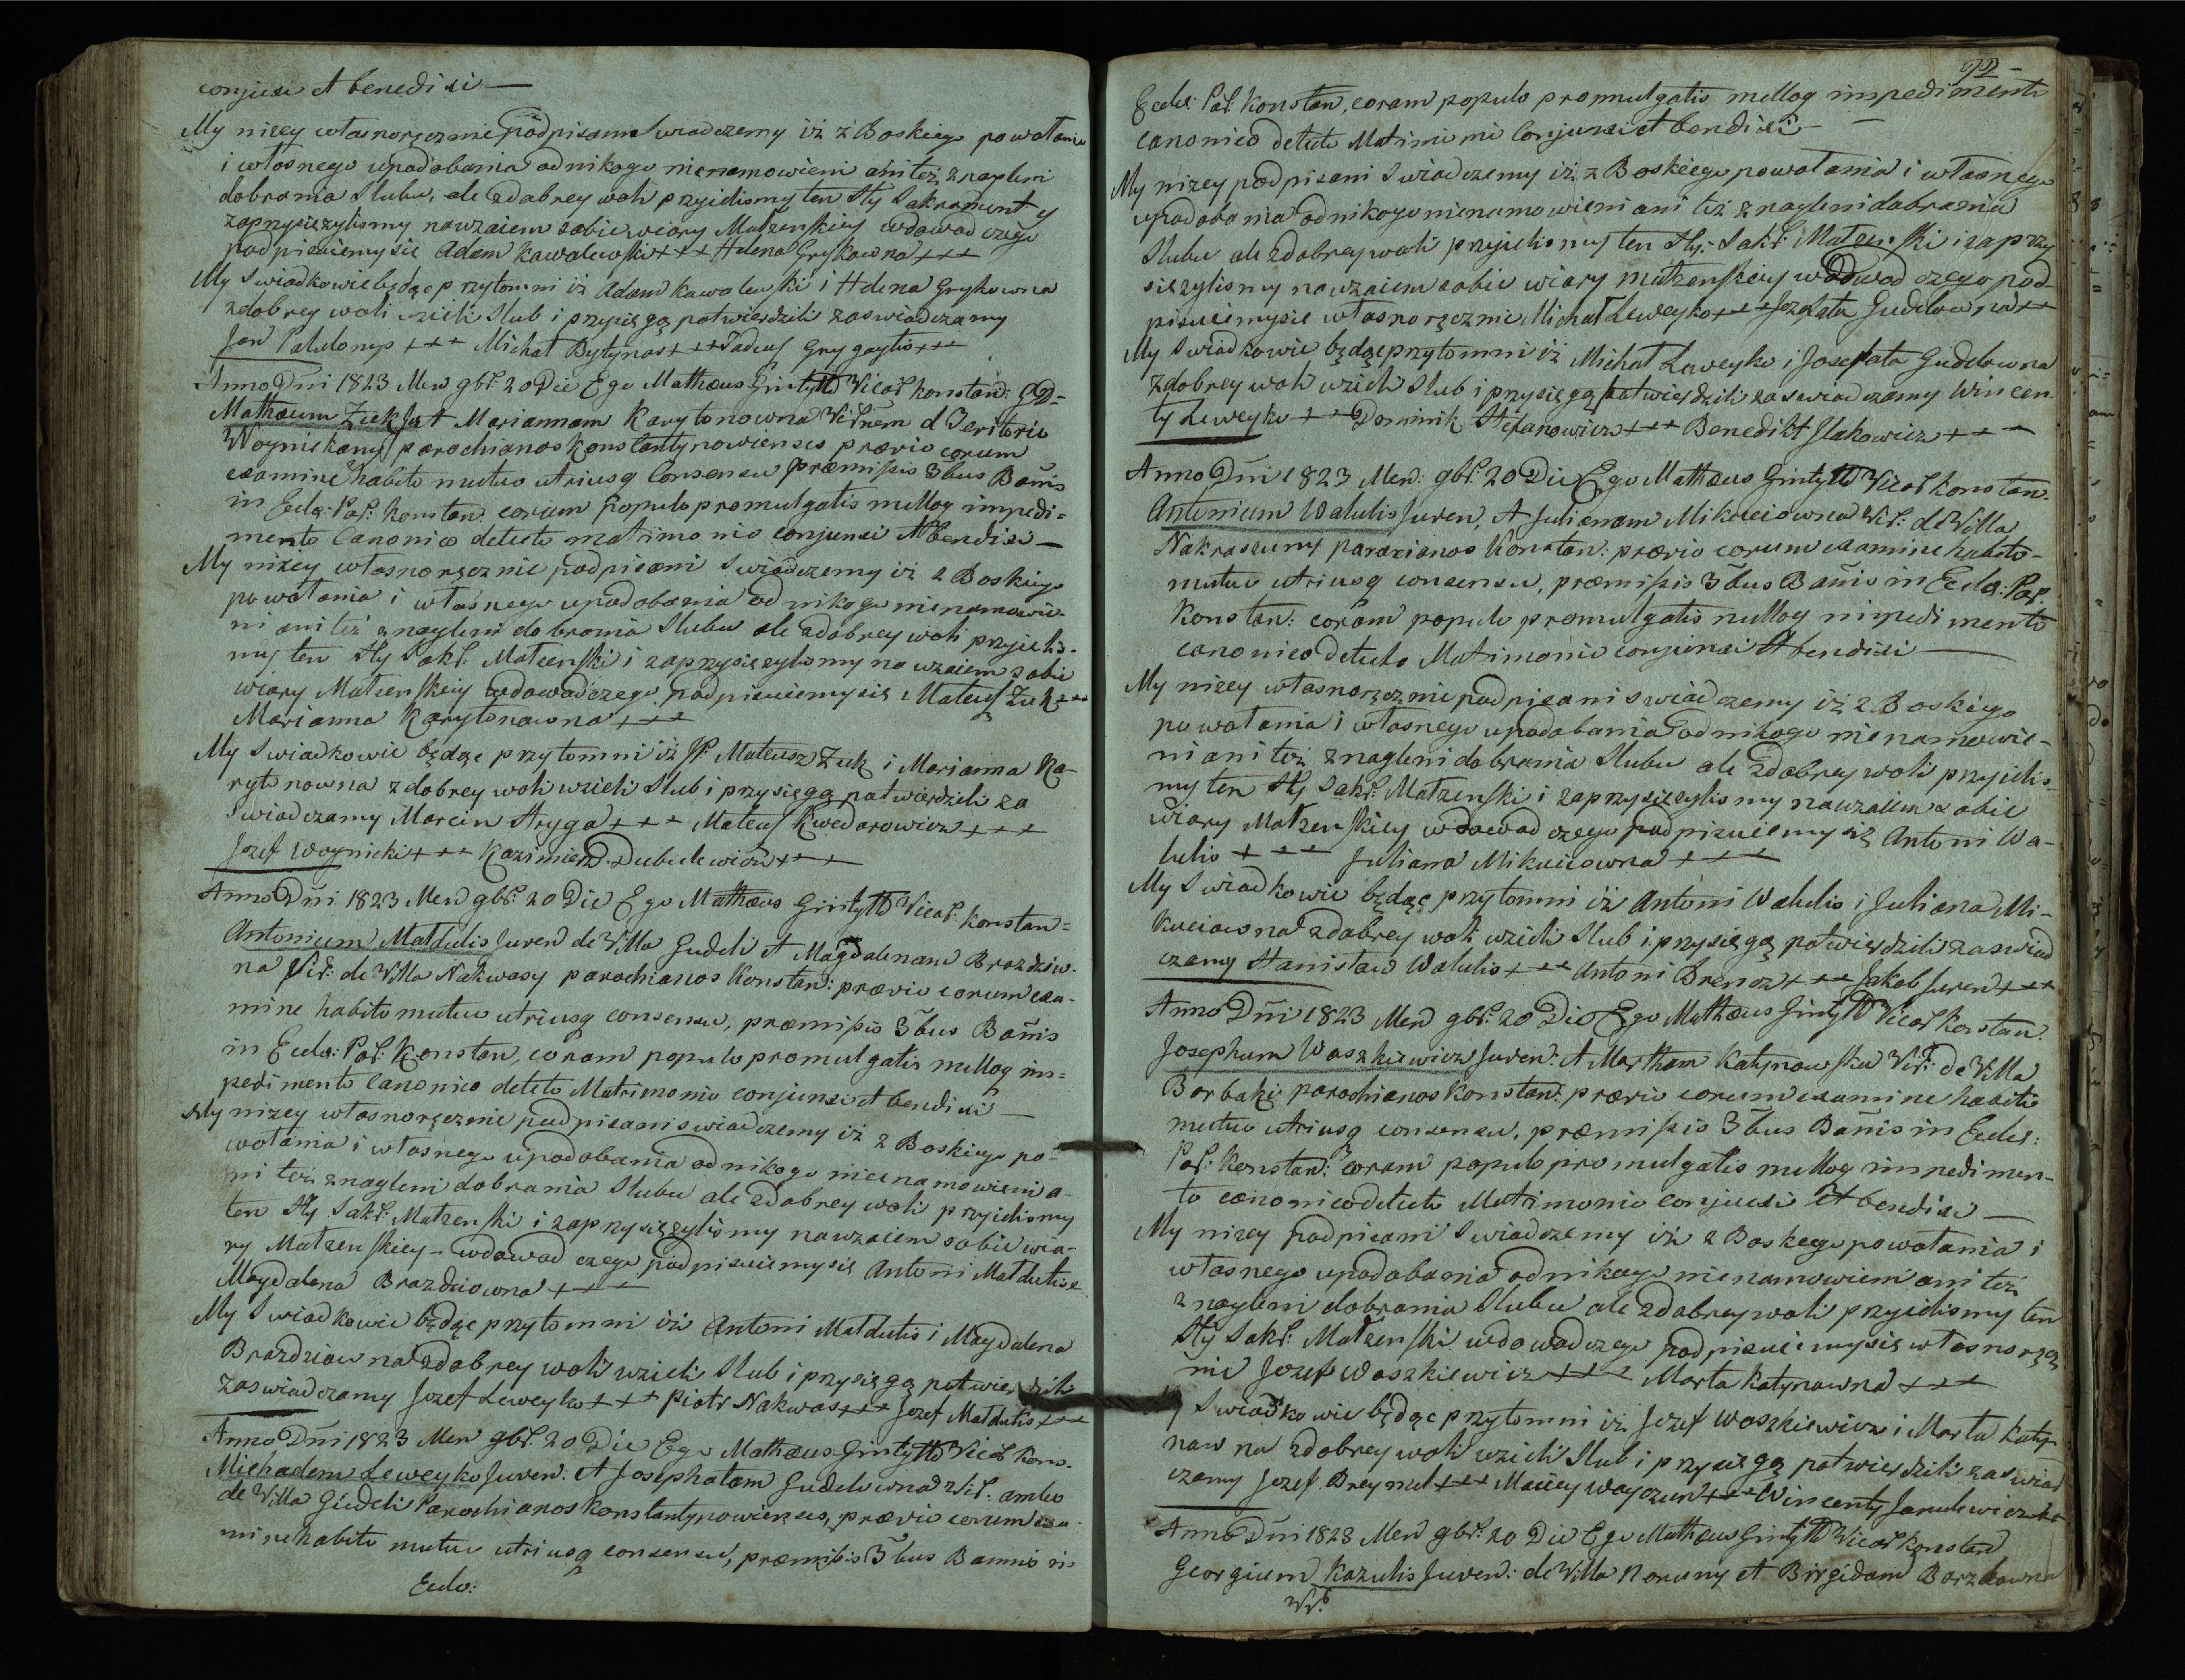 conjunxi et benedixi —
My niżey własnoręcznie podpisani swiadczemy iż z Boskiego powołania
i własnego upodobania od nikogo nienamowieni ani też znagleni
dobrania slubu, ale zdobrey woli przyieliśmy ten Sty Sakrament y
zaprzysięzylismy nawzaiem sobie wiary Małzenskiey wdowod czego
podpisuiemysie Adam Kowalewski +++ Helena Grykowna +++
My Swiadkowie będąc przytomni iż Adam Kowalewski i Helena Grykowna
zdobrey woli wzieli Slub i przysięgą potwierdzili zaswiadczamy
Jan Palulonys +++ Michał Bytynas +++ Tadeusz Grygaytis +++
Anno Dñi 1823 Men gbr: 20 Die Ego Mathæus Gintyłło Vicar: Konstan: GD=
Mathæum Zuk Juv et Mariannam Karytonowna Virñem d Teritorio
Woyniskany parochianos Konstantynowienses prævio eorum
examine habito mutuo utriusq Consensu præmissis 3bus Bañis
in Eccla: Par: Konstan: coram populo promulgatis nulloq impedi=
mento Canonico detecto matrimonio conjunxi et bendixi —
My niżey własnoręcznie podpisani swiadczemy iż z Boskiego
powołania i własnego upodobania od nikogo nienamowie-
ni ani też znagleni dobrania Slubu ale zdobrey woli przyielis-
my ten Sty Sakr: Małzenski i zaprzysięzylismy nawzaiem sobie
wiary Małzenskiey wdowod czego podpisuiemysie Mateusz Zuk +++
Marianna Karytonowna +++
My Swiadkowie będąc przytomni iż JP Mateusz Zuk i Marianna Ka-
rytonowna zdobrey woli wzieli Slub i przysięgą potwierdzili za
swiadczamy Marcin Stryga +++ Mateusz Kwedarowicz +++
Jozef Woynicki +++ Kazimierz Dubielewicz +++
Anno Dñi 1823 Men gbr: 20 Die Ego Mathæus Gintyłło Vicar: Konstan=
Antonium Matdutis Juven de Villa Gudeli et Magdalenam Brazdziow-
na Vir: de Villa Nakwasy parochianos Konstan: prævio eorum exa-
mine habito mutuo utriusq consensu, præmissis 3bus Bañis
in Eccla: Par: Konstan, coram populo promulgatis nulloq im=
pedimento Canonico detecto Matrimonio conjunxi et bendixi —
My niżey własnoręcznie podpisani swiadczemy iż z Boskiego po-
wołania i własnego upodobania od nikogo nienamowieni a-
ni też znagleni dobrania Slubu ale zdobrey woli przyielismy
ten Sty Sakr: Małzenski i zaprzysięzylismy nawzaiem sobie wia-
ry Małzenskiey – wdowod czego podpisuiemysie Antoni Matdutis x
Magdalena Brazdziowna +++
My Swiadkowie będąc przytomni iż Antoni Matdutis i Magdalena
Brazdziowna zdobrey woli wzieli Slub i przysięgą potwierdzili
zaswiadczamy Jozef Leweyko +++ Piotr Nakwas +++ Jozef Matdutis +++
Anno Dñi 1823 Men gbr: 20 Die Ego Mathæus Gintyłło Vicar Kons-
Michaelem Leweyko Juven: et Josephatam Gudelowna Vir: ambo
de Villa Gudeli Parochianos Konstantynowienses, prævio eorum exa-
mine habito mutuo utriusq consensu, præmissis 3bus Bannis in
Eccla:
92 –
Eccla: Par: Konstan, coram populo promulgatis nulloq impedimento
canonico detecto Matrimonio Conjunxi et bendixi —
My niżey podpisani Swiadczemy iż z Boskiego powołania i własnego
upodobania od nikogo nienamowieni ani też znagleni dobrania
Slubu ale zdobrey woli przyielismy ten Sty: Sakr: Małzenski i zaprzy
sięzylismy nawzaiem sobie wiary małzenskiey wdowod czego pod-
pisuiemysie własnoręcznie Michał Leweyko +++ Jozefata Gudelowna ++
My Swiadkowie będąc przytomni iż Michał Leweyko i Josefata Gudelowna
zdobrey woli wzieli Slub i przysięgą potwierdzili zaswiadczamy Wincen
ty Leweyko +++ Dominik Stefanowicz +++ Benedikt Slakowicz +++
Anno Dñi 1823 Men: gbr: 20 Die Ego Mathæus Gintyłło Vicar Konstan.
Antonium Walulis Juven, et Julianam Mikuciowna Vir: de Villa
Nakraszuny paraxianos Konstan: prævio eorum examine habito-
mutuo utriusq consensu, præmissis 3bus Bañis in Eccla: Par.
Konstan: coram populo promulgatis nulloq impedimento
canonico detecto Matrimonio conjunxi et bendixi —
My niżey własnoręcznie podpisani swiadczemy iż z Boskiego
powołania i własnego upodobania od nikogo nienamowie-
ni ani też znagleni dobrania Slubu ale zdobrey woli przyielis
my ten Sty Sakr: Małzenski i zaprzysięzylismy nawzaiem sobie
wiary Małzenskiey wdowod czego podpisuiemysię Antoni Wa-
lulis +++ Juliana Mikuciowna +++
My Swiadkowie będąc przytomni iż Antoni Walulis i Juliana Mi-
kuciowna zdobrey woli wzieli Slub i przysięgą potwierdzili zaswiad
czamy Stanisław Walulis +++ Antoni Brenaz +++ Jakob Juren +++
Anno Dñi 1823 Men gbr: 20 Die Ego Mathæus Gintyłło Vicar Konstan.
Josephum Waszkiewicz Juven: et Martham Katynowska Vir: de Villa
Borbaki parochianos Konstan: prævio eorum examine habito
mutuo utriusq consensu, præmissis 3bus Bañis in Eccla:
Par: Konstan: coram populo promulgatis nulloq impedimen-
to canonico detecto Matrimonio conjunxi et bendixi —
My niżey podpisani Swiadczemy iż z Boskiego powołania i
własnego upodobania od nikogo nienamowieni ani też
znagleni dobrania Slubu ale zdobrey woli przyielismy ten
Sty Sakr: Małzenski wdowod czego podpisuiemysię własnoręcz
nie Jozef Waszkiewicz +++ Marta Katynowna +++
y Swiadkowie będąc przytomni iż Jozef Waszkiewicz i Marta Katy-
nowna zdobrey woli wzieli Slub i przysięgą potwierdzili zaswiad
czamy Jozef Breymel +++ Maciey Wayczun +++ Wincenty Janulewicz ++
Anno Dñi 1823 Men gbr: 20 Die Ego Mathæus Gintyłło Vicar Konstan
Georgium Kazulis Juven: de Villa Noruny et Birgidam Barzdowna
Vir: